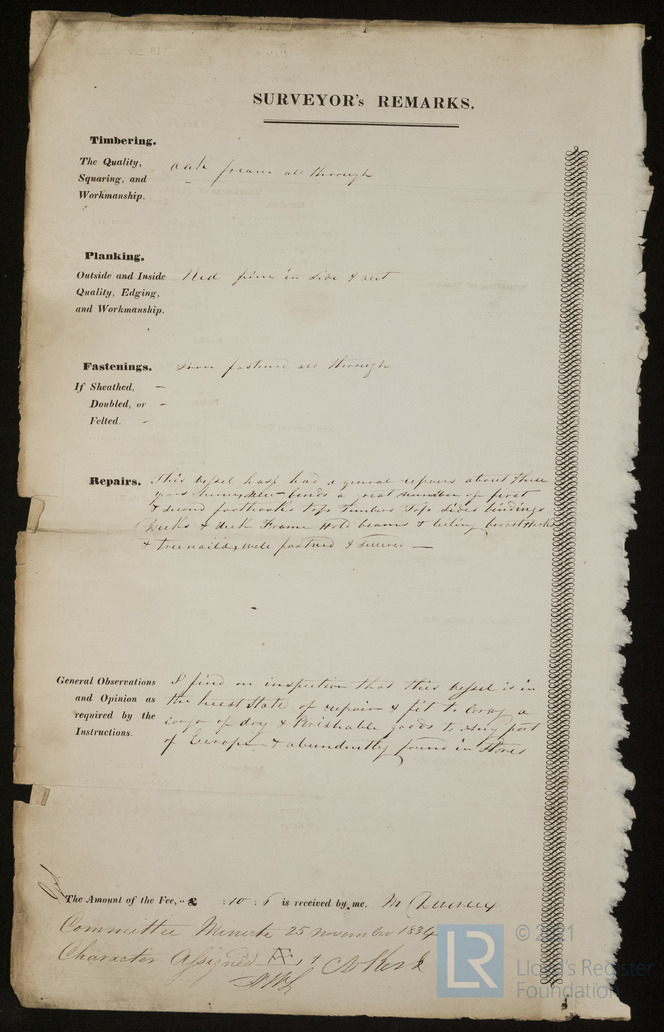 SURVEYOR's REMARKS.
Timbering.
The Quality,
Squaring, and
Workmanship.
oak frame all through
Planking.
Outside and Inside
Quality, Edging,
and Workmanship.
Red pine in side & out
Fastenings.
If Sheathed, –
Doubled, or –
Felted. –
Iron fastened all through
Repairs.
This vessel hash had a general repairs about three
years since, new bends a great number of first
& second foothooks Top timbers Top sides bindings
Decks & deck Frame Hold beams & ceiling breast Hooks
& treenails, well fastned & secured —
General Observations
and Opinion as
required by the
Instructions.
I find on inspection that this vessel is in
the best State of repair & fit to Carry a
cargo of dry & Perishable goods to any port
of Europe & abundently found in Stores
The Amount of the Fee, £ : 10 : 6 is received by me.
Committee Minute 25 November 1834
Character Assigned A 1
© 2021
LR
Lloyd's Register
Foundation